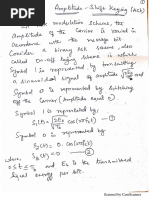 Amplitude-Shift Keying (ASK)
modulation scheme, the
Amplitude of the Carrier is Varied in
Accordance with the message bit
Consider a binary ASK scheme, also
called On-off keying scheme in which
Symbol 1 is represented by transmitting
a sinusoidal signal of amplitude
Symbol 0 is represented by switching
off the Carrier (amplitude equal
Symbol 1 is represented by
S₁(t) =
Symbol 0 is represented by
S₂(t) = 0
where,
0 ≤ t ≤ and Eb is the transmitted
signal energy per bit.
Scanned by CamScanner